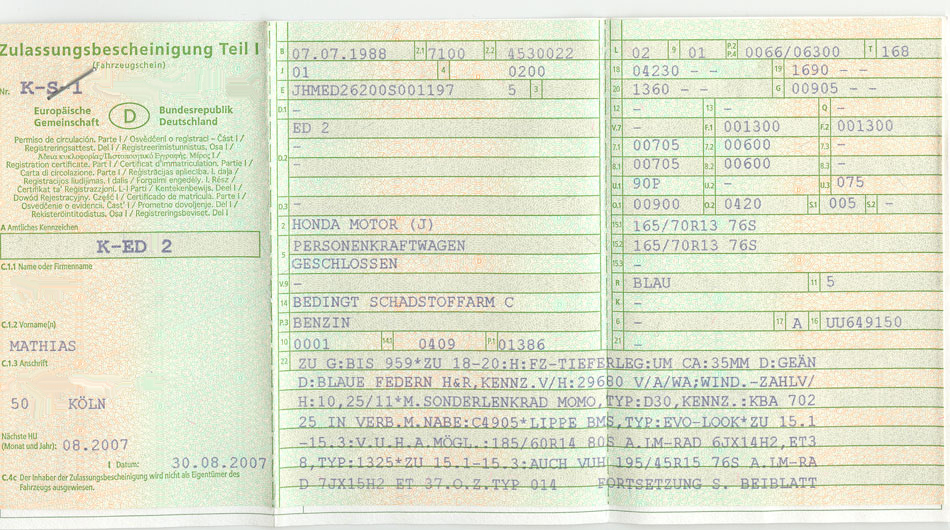 Zulassungsbescheinigung Teil I
(Fahrzeugschein)
Nr. K-S-1
Europäische Gemeinschaft
D
Bundesrepublik Deutschland
Permiso de circulación. Parte I / Osvědčení o registraci – Část I /
Registreringsattest. Del I / Registreerimistunnistus, Osa I /
Άδεια κυκλοφορίας/Πιστοποιητικό Εγγραφής. Μέρος I /
Registration certificate. Part I / Certificat d'immatriculation. Partie I /
Carta di circolazione. Parte I / Reģistrācijas apliecība. I. daļa /
Registracijos liudijimas. I dalis / Forgalmi engedély. I. Rész /
Ċertifikat ta' Reġistrazzjoni. L-I Parti / Kentekenbewijs. Deel I /
Dowód Rejestracyjny. Część I / Certificado de matrícula. Parte I /
Osvedčenie o evidencii. Časť I / Prometno dovoljenje. Del I /
Rekisteröintitodistus. Osa I / Registreringsbeviset. Del I
A Amtliches Kennzeichen
K-ED 2
C.1.1 Name oder Firmenname
C.1.2 Vorname(n)
MATHIAS
C.1.3 Anschrift
50 KÖLN
Nächste HU
(Monat und Jahr): 08.2007
I Datum: 30.08.2007
C.4c Der Inhaber der Zulassungsbescheinigung wird nicht als Eigentümer des
Fahrzeugs ausgewiesen.
B 07.07.1988 2.1 7100 2.2 4530022
J 01 4 0200
E JHMED26200S001197 5 3
D.1 –
ED 2
–
D.2 –
D.3 –
2 HONDA MOTOR (J)
PERSONENKRAFTWAGEN
5 GESCHLOSSEN
V.9 –
14 BEDINGT SCHADSTOFFARM C
P.3 BENZIN
10 0001 14.1 0409 P.1 01386
L 02 9 01 P.2 P.4 0066/06300 T 168
18 04230 – – 19 1690 – –
20 1360 – – G 00905 – –
12 – 13 – Q –
V.7 – F.1 001300 F.2 001300
7.1 00705 7.2 00600 7.3 –
8.1 00705 8.2 00600 8.3 –
U.1 90P U.2 – U.3 075
O.1 00900 O.2 0420 S.1 005 S.2 –
15.1 165/70R13 76S
15.2 165/70R13 76S
15.3 –
R BLAU 11 5
K –
6 – 17 A 16 UU649150
21 –
22 ZU G:BIS 959*ZU 18-20:H:FZ-TIEFERLEG:UM CA:35MM D:GEÄN
D:BLAUE FEDERN H&R,KENNZ.V/H:29680 V/A/WA;WIND.-ZAHLV/
H:10,25/11*M.SONDERLENKRAD MOMO,TYP:D30,KENNZ.:KBA 702
25 IN VERB.M.NABE:C4905*LIPPE BMS,TYP:EVO-LOOK*ZU 15.1
-15.3:V.U.H.A.MÖGL.:185/60R14 80S A.LM-RAD 6JX14H2,ET3
8,TYP:1325*ZU 15.1-15.3:AUCH VUH 195/45R15 76S A.LM-RA
D 7JX15H2 ET 37.O.Z.TYP 014 FORTSETZUNG S. BEIBLATT